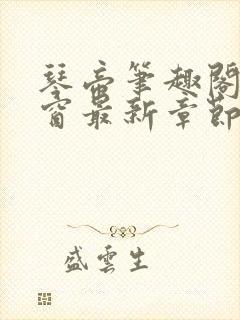 琴帝筆趣閣
窗最新章節
盛雲生